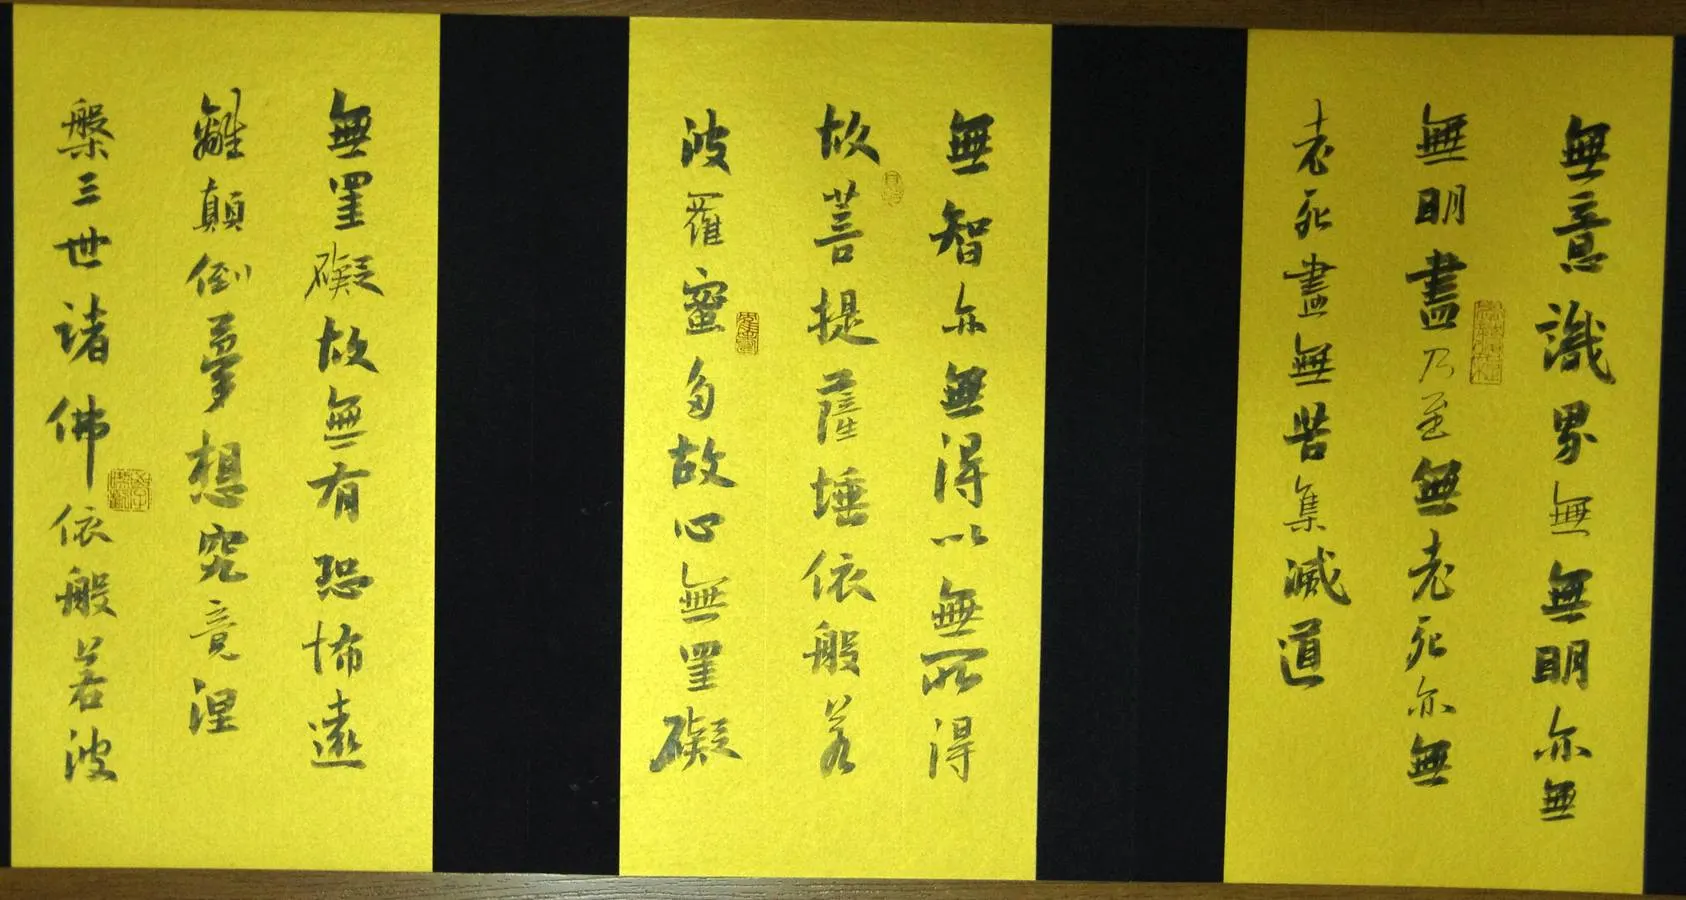 無意識界無無明亦無
無明盡乃至無老死亦無
老死盡無苦集滅道
無智亦無得以無所得
故菩提薩埵依般若
波羅蜜多故心無罣礙
無罣礙故無有恐怖遠
離顛倒夢想究竟涅
槃三世諸佛依般若波